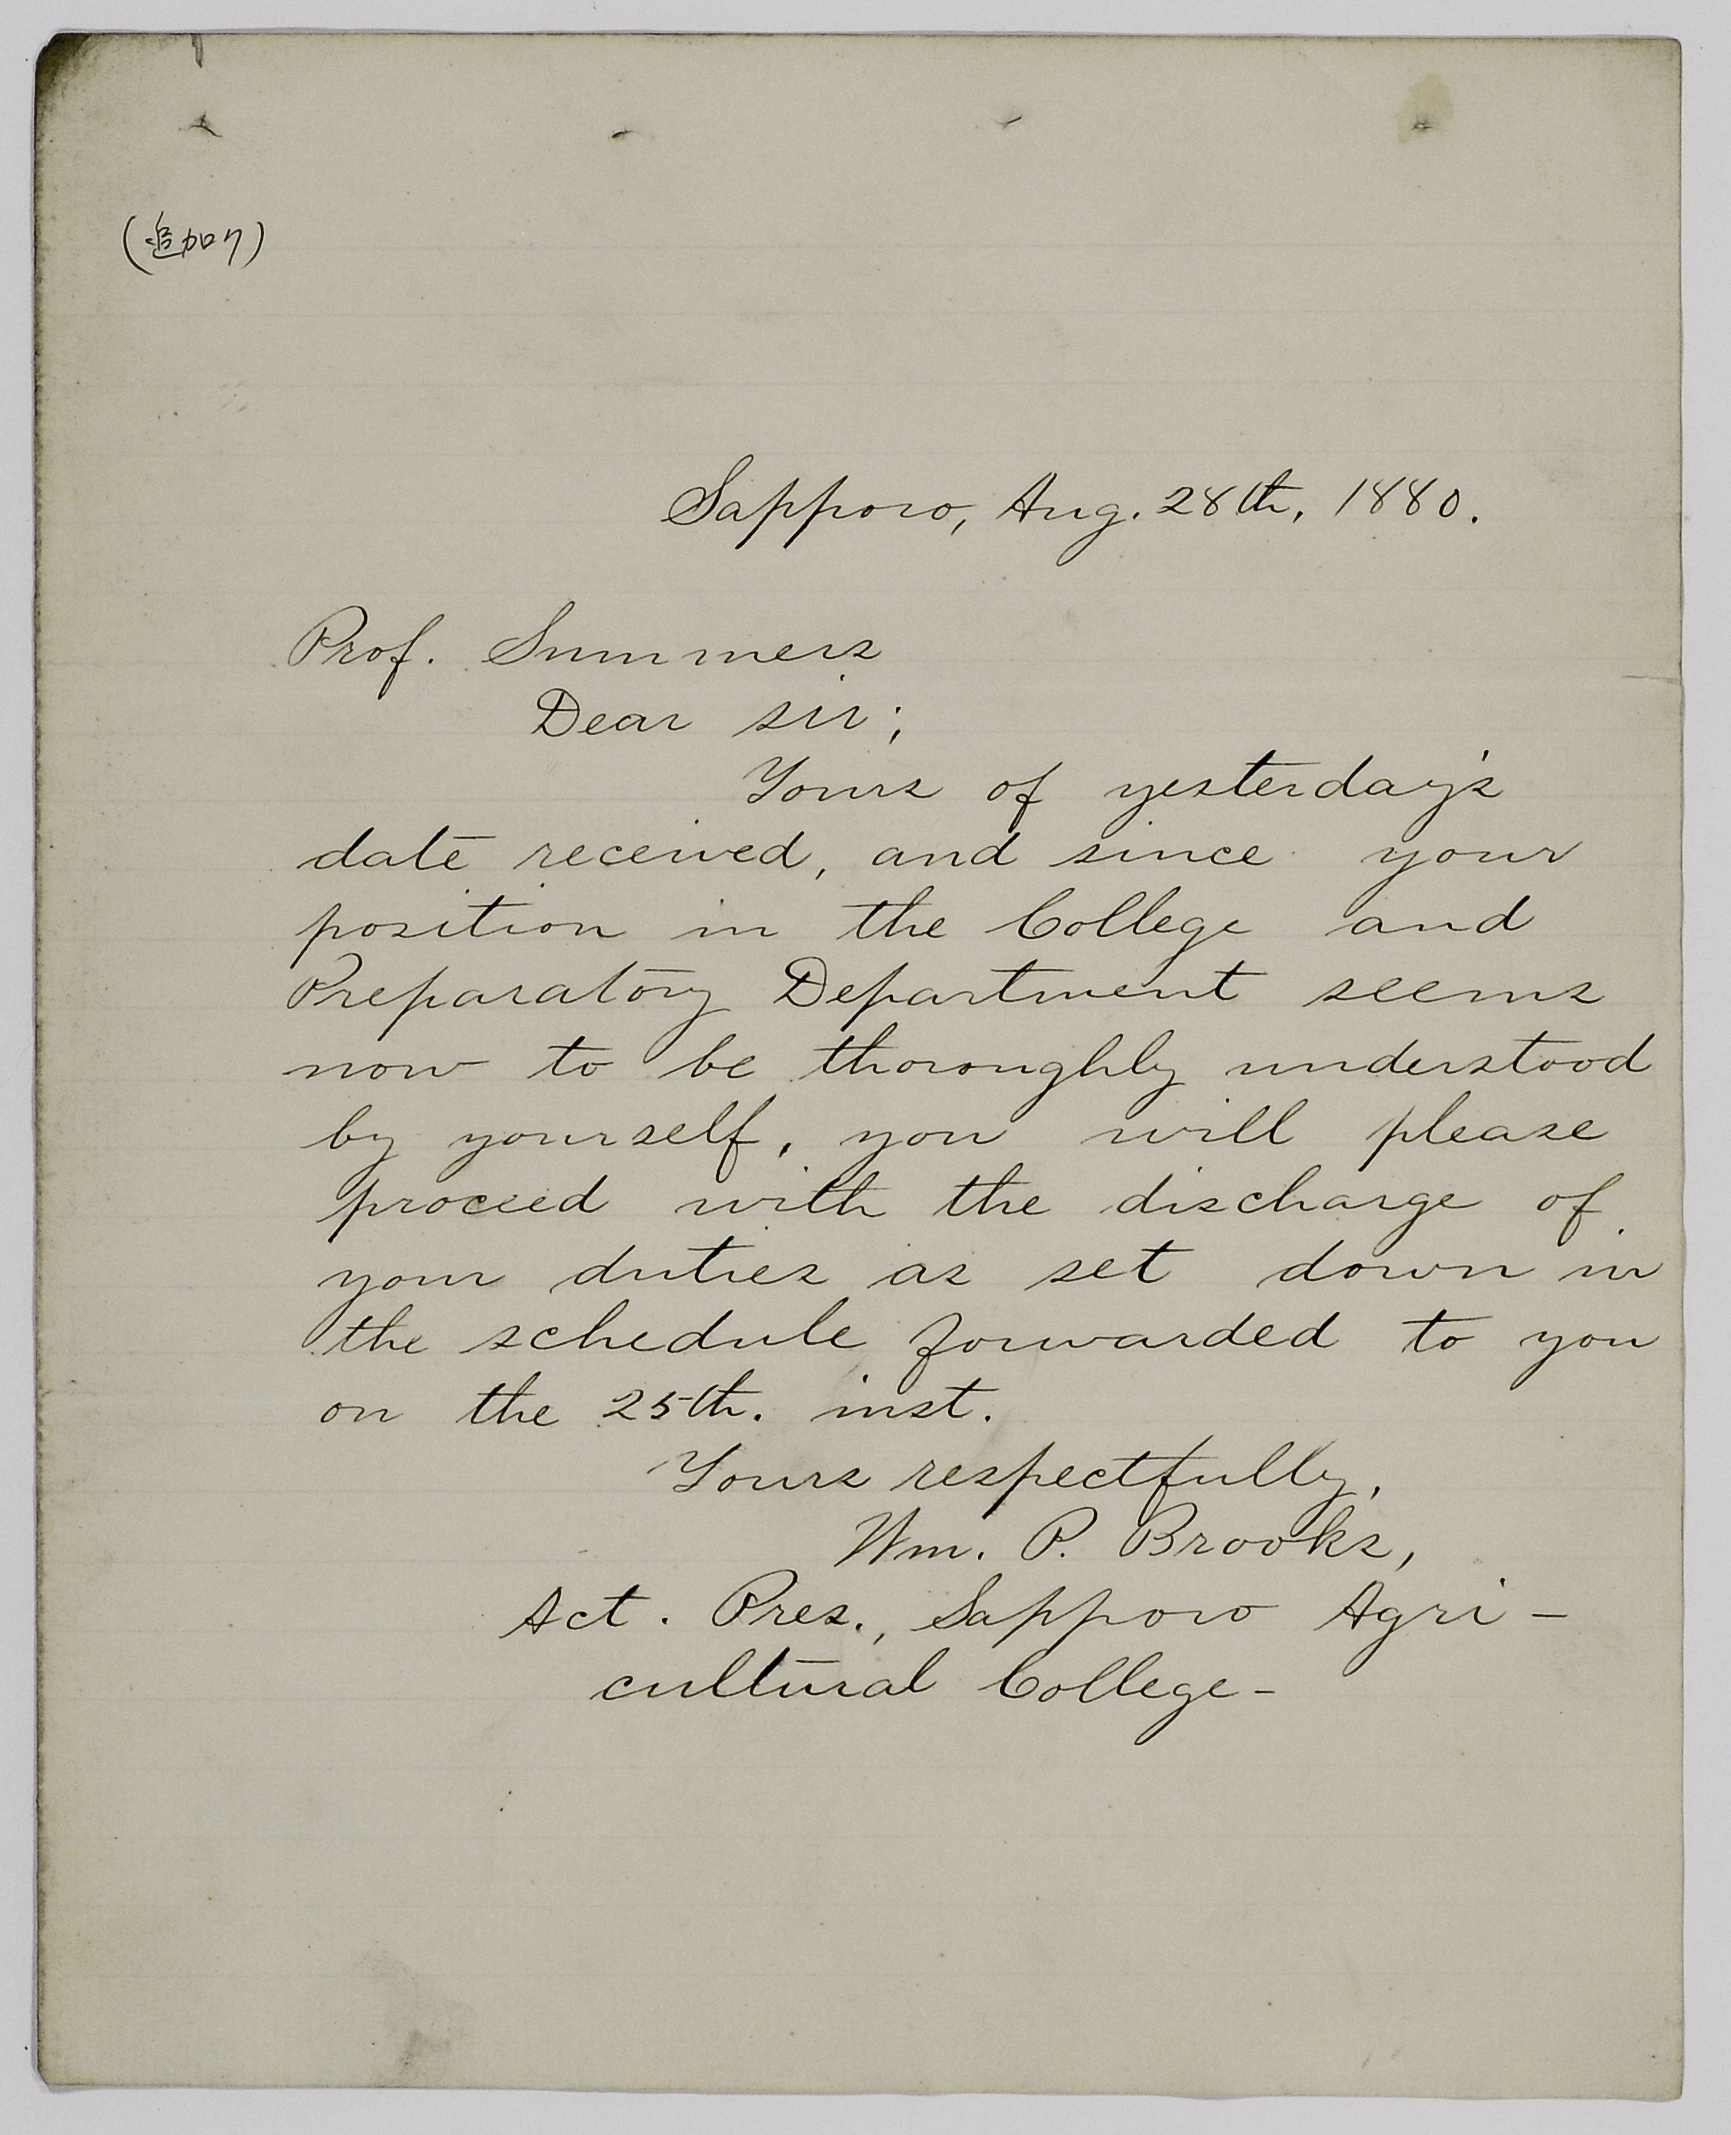 (追加ク)
Sapporo, Aug. 28th, 1880.
Prof. Summers
Dear sir;
Yours of yesterday's
date received, and since your
position in the College and
Preparatory Department seems
now to be thoroughly understood
by yourself, you will please
proceed with the discharge of
your duties as set down in
the schedule forwarded to you
on the 25th. inst.
Yours respectfully,
Wm. P. Brooks,
Act. Pres., Sapporo Agri-
cultural College-